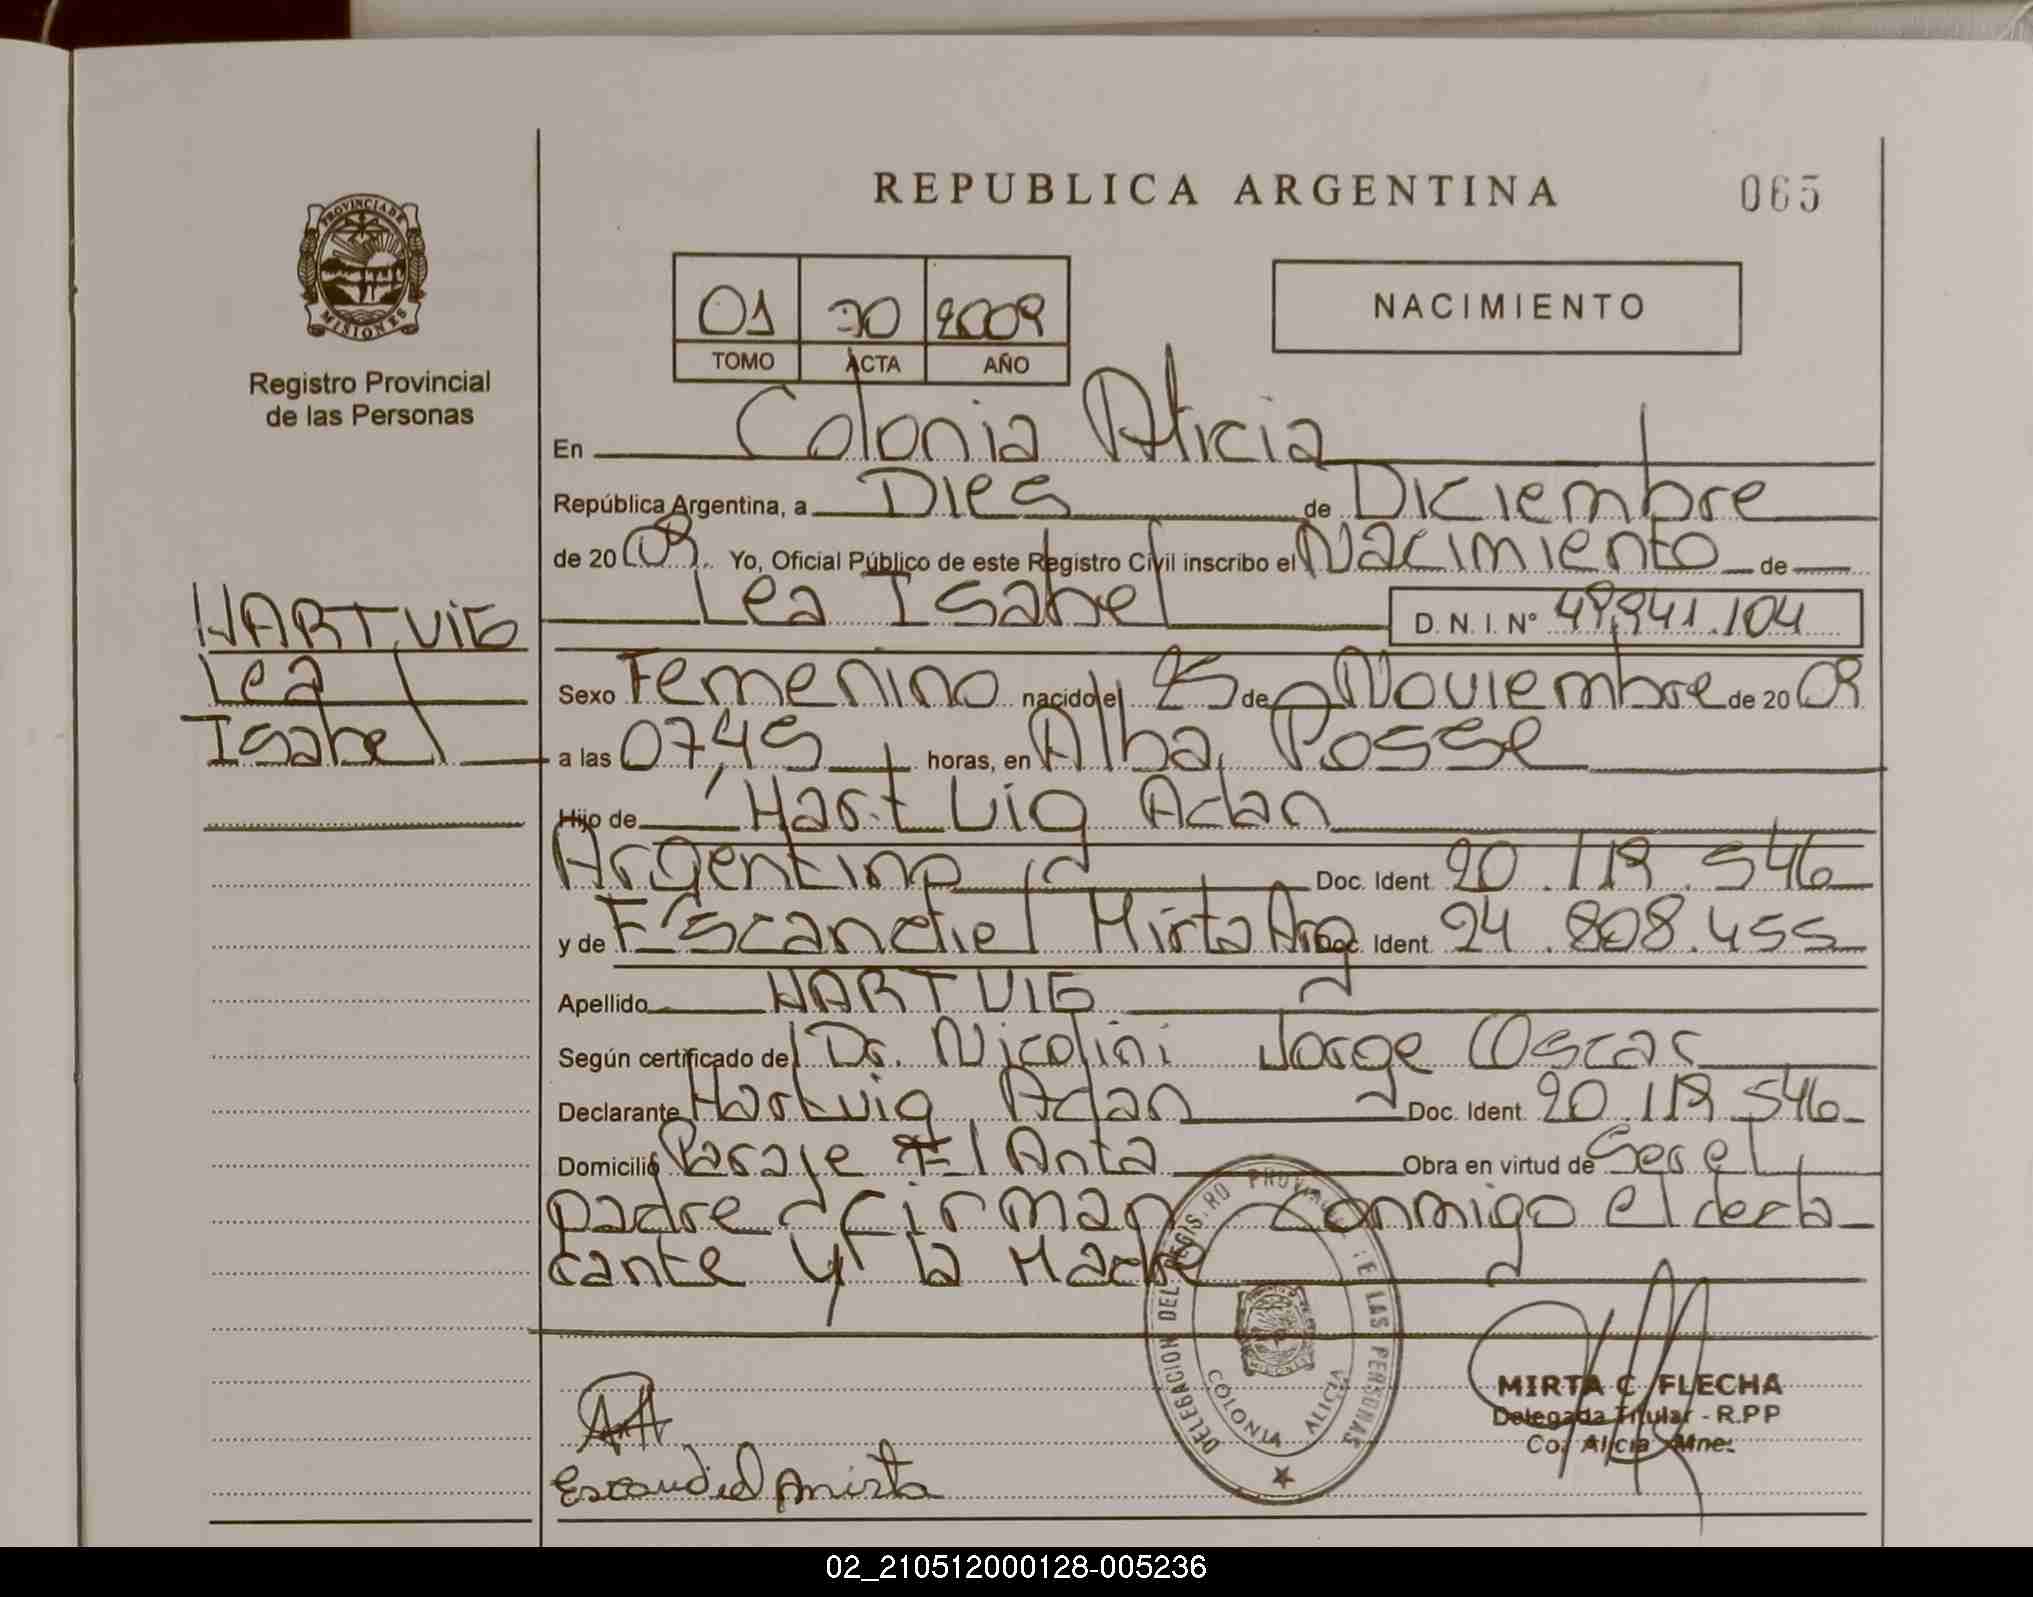 REPUBLICA ARGENTINA
065
PROVINCIA DE MISIONES
Registro Provincial
de las Personas
01 70 2009
TOMO ACTA AÑO
NACIMIENTO
En Colonia Alicia
República Argentina, a Dies de Diciembre
de 20 09. Yo, Oficial Público de este Registro Civil inscribo el Nacimiento de
Lea Isabel D. N. I. N° 49,941.104
HARTVIG
Lea
Isabel
Sexo Femenino nacido el 25 de Noviembre de 20 09
a las 07,45 horas, en Alba Posse
Hijo de Hartvig Adan
Argentino Doc. Ident. 20.119.546
y de Escandiel Mirta Arg Doc. Ident. 24.808.455
Apellido HARTVIG
Según certificado del Dr. Nicolini Jorge Oscar
Declarante Hartvig Adan Doc. Ident. 20.119.546
Domicilio Paraje El Anta Obra en virtud de Ser el
padre firman conmigo el decla
rante y la Madre
DELEGACION DEL REGISTRO PROVINCIAL DE LAS PERSONAS
COLONIA ALICIA
MIRTA C. FLECHA
Delegada Titular - R.PP
Col. Alicia Mnes.
Escandiel Mirta
02_210512000128-005236